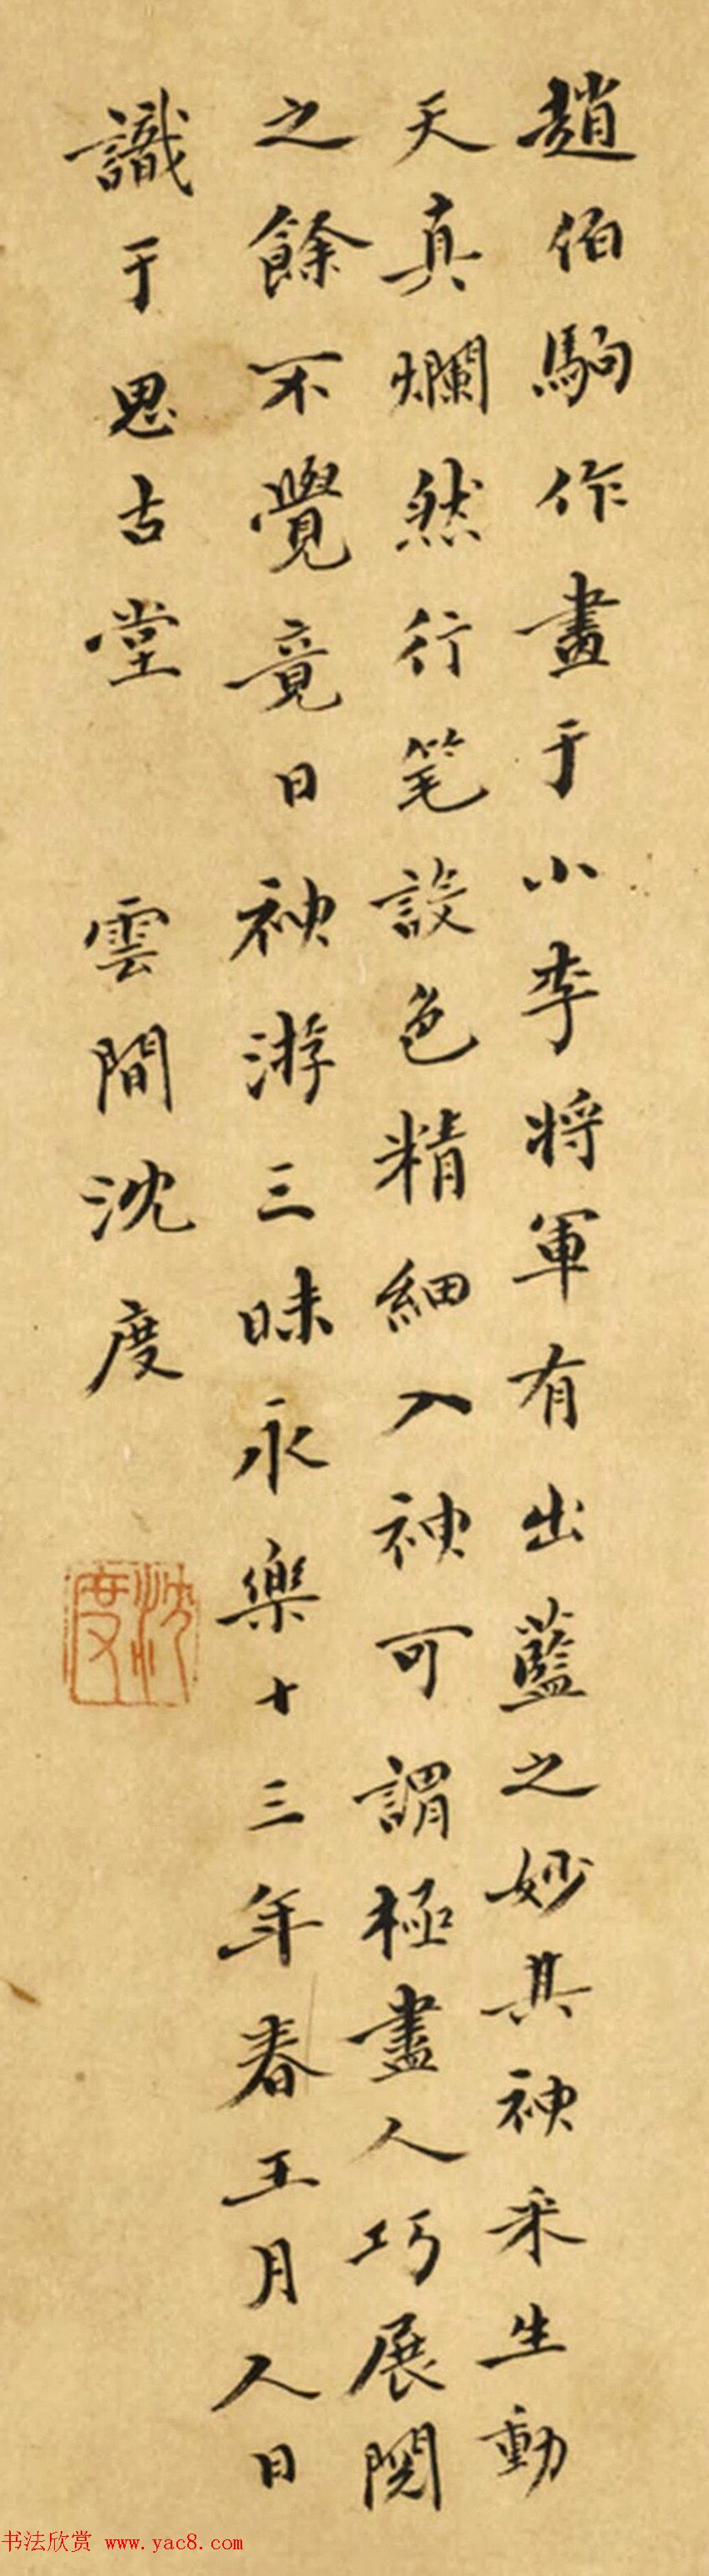 趙伯駒作畫于小李將軍有出藍之妙其神采生動
天真爛然行笔設色精細入神可謂極盡人巧展閱
之餘不覺竟日神游三昧永樂十三年春王月人日
識于思古堂 雲間沈度
沈度
书法欣赏 www.yac8.com